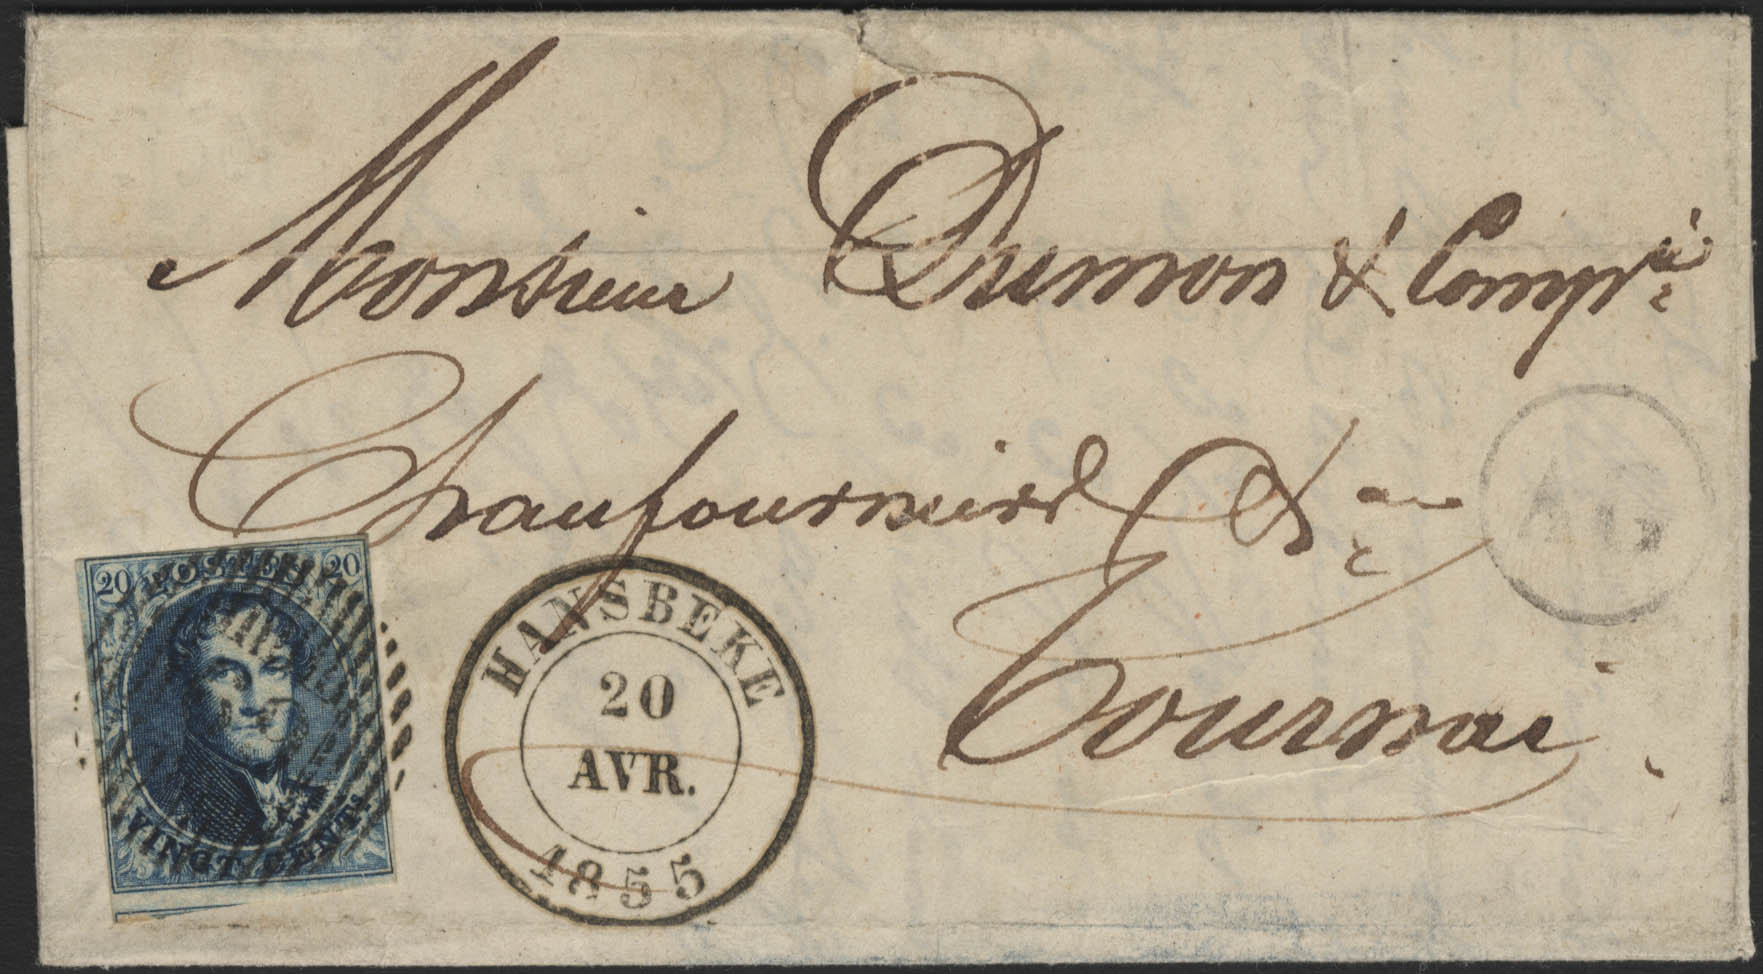 Monsieur Dumon & Compie
Chaufournier &
Tournai
20 POSTES 20
VINGT CENTS
HANSBEKE
20
AVR.
1855